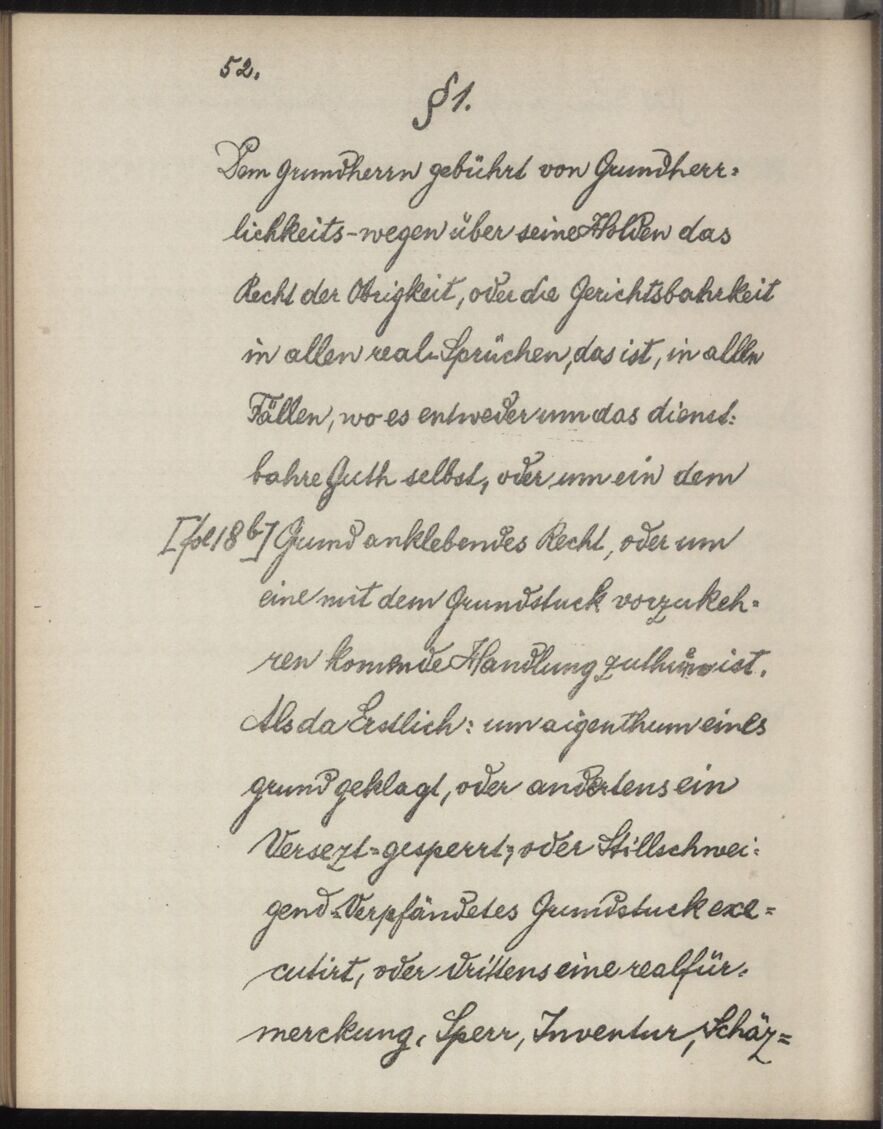 52.
§ 1.
Dem Grundherrn gebührt von Grundherr=
lichkeits-wegen über seine Holden das
Recht der Obrigkeit, oder die Gerichtsbahrkeit
in allen real-Sprüchen, das ist, in allen
Fällen, wo es entweder um das dienst:
bahre Guth selbst, oder um ein dem
[fol 18b] Grund anklebendes Recht, oder um
eine mit dem Grundstuck vorzukeh=
ren komende Handlung zu thun ist.
Als da Erstlich: um aigenthum eines
grund geklagt, oder andertens ein
Versezt=gesperrt; oder Stillschwei:
gend-Verpfändetes Grundstuck exe=
cutirt, oder drittens eine realfür-
merckung, Sperr, Inventur, Schäz=